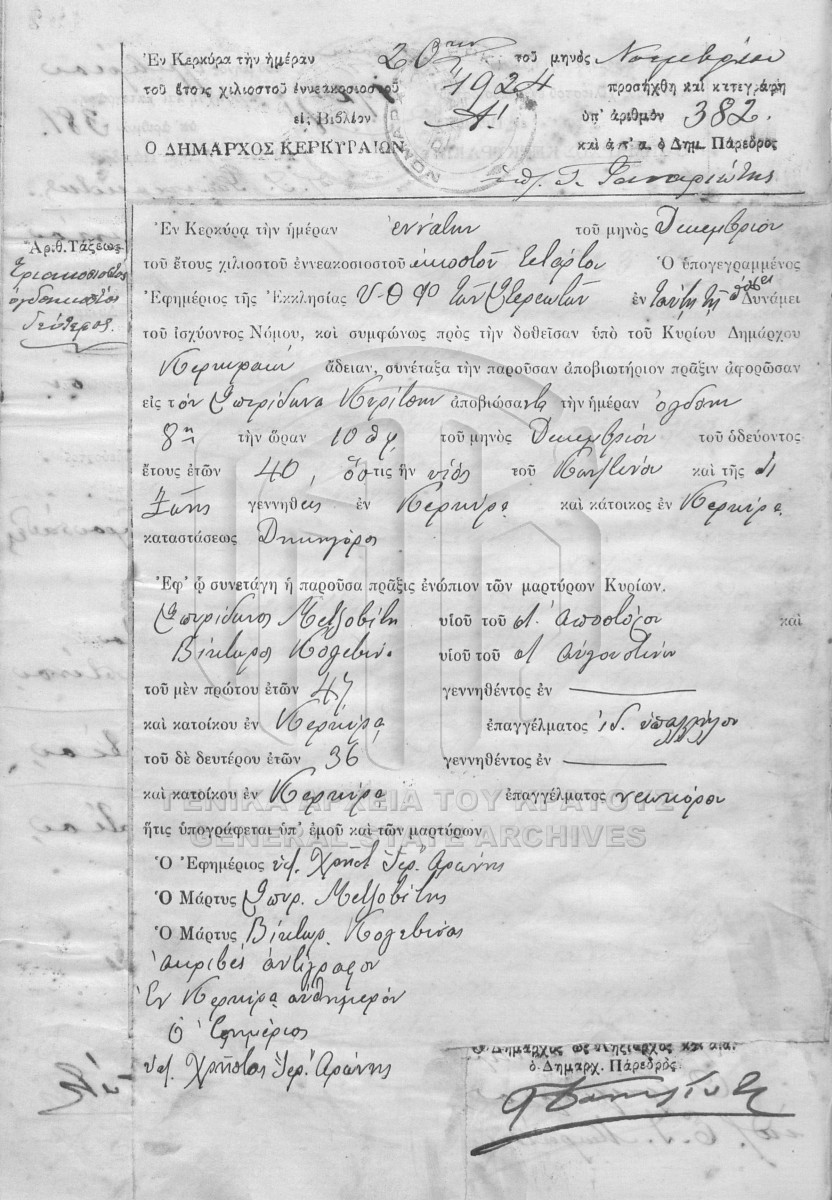 Ἐν Κερκύρᾳ τὴν ἡμέραν 20ην τοῦ μηνὸς
τοῦ ἔτους χιλιοστοῦ ἐννεακοσιοστοῦ 1924 προσήχθη καὶ κατεγράφη
εἰς Βιβλίον Α! ὑπ' ἀριθμὸν 382.
Ο ΔΗΜΑΡΧΟΣ ΚΕΡΚΥΡΑΙΩΝ καὶ ἀπ' α. ὁ Δημ. Πάρεδρος
Ἀρ.θ. Τάξεως
τριακοσιοστὸς
ὀγδοηκοστὸς
δεύτερος.
Ἐν Κερκύρᾳ τὴν ἡμέραν ἐννάτην τοῦ μηνὸς Δεκεμβρίου
τοῦ ἔτους χιλιοστοῦ ἐννεακοσιοστοῦ εἰκοστοῦ τετάρτου Ὁ ὑπογεγραμμένος
Ἐφημέριος τῆς Ἐκκλησίας Υ. Θ τῶν ἐν ταύτῃ τῇ πόλει Δυνάμει
τοῦ ἰσχύοντος Νόμου, καὶ συμφώνως πρὸς τὴν δοθεῖσαν ὑπὸ τοῦ Κυρίου Δημάρχου
ἄδειαν, συνέταξα τὴν παροῦσαν ἀποβιωτήριον πρᾶξιν ἀφορῶσαν
εἰς τὸν Σπυρίδωνα ἀποβιώσαντα τὴν ἡμέραν ὀγδόην
8η τὴν ὥραν 10 τοῦ μηνὸς Δεκεμβρίου τοῦ ὁδεύοντος
ἔτους ἐτῶν 40, ὅστις ἦν υἱὸς τοῦ Κων]τίνου καὶ τῆς
γεννηθεὶς ἐν Κερκύρᾳ καὶ κάτοικος ἐν Κερκύρᾳ
καταστάσεως Δικηγόρος
Ἐφ' ᾧ συνετάγη ἡ παροῦσα πρᾶξις ἐνώπιον τῶν μαρτύρων Κυρίων.
Σπυρίδωνος Μετζοβίτη υἱοῦ τοῦ Ἀποστόλου καὶ
Βίκτωρος Κολεβίνα υἱοῦ τοῦ Αὐγουστίνου
τοῦ μὲν πρώτου ἐτῶν 47 γεννηθέντος ἐν
καὶ κατοίκου ἐν Κερκύρᾳ ἐπαγγέλματος ἰδ. ὑπαλλήλου
τοῦ δὲ δευτέρου ἐτῶν 36 γεννηθέντος ἐν
καὶ κατοίκου ἐν Κερκύρᾳ ἐπαγγέλματος νεωκόρου
ΓΕΝΙΚΑ ΑΡΧΕΙΑ ΤΟΥ ΚΡΑΤΟΥΣ
ἥτις ὑπογράφεται ὑπ' ἐμοῦ καὶ τῶν μαρτύρων
GENERAL STATE ARCHIVES
Ὁ Ἐφημέριος Χρῆστ. Ἱερ. Ἀρώνης
Ὁ Μάρτυς Σπυρ. Μετζοβίτης
Ὁ Μάρτυς Βίκτωρ Κολεβίνας
Ἀκριβὲς ἀντίγραφον
Ἐν Κερκύρᾳ αὐθημερόν
Ὁ Ἐφημέριος
Χρῆστος Ἱερ. Ἀρώνης
Ὁ Δήμαρχος ὡς Ληξίαρχος καὶ
ὁ Δημαρχ. Πάρεδρος